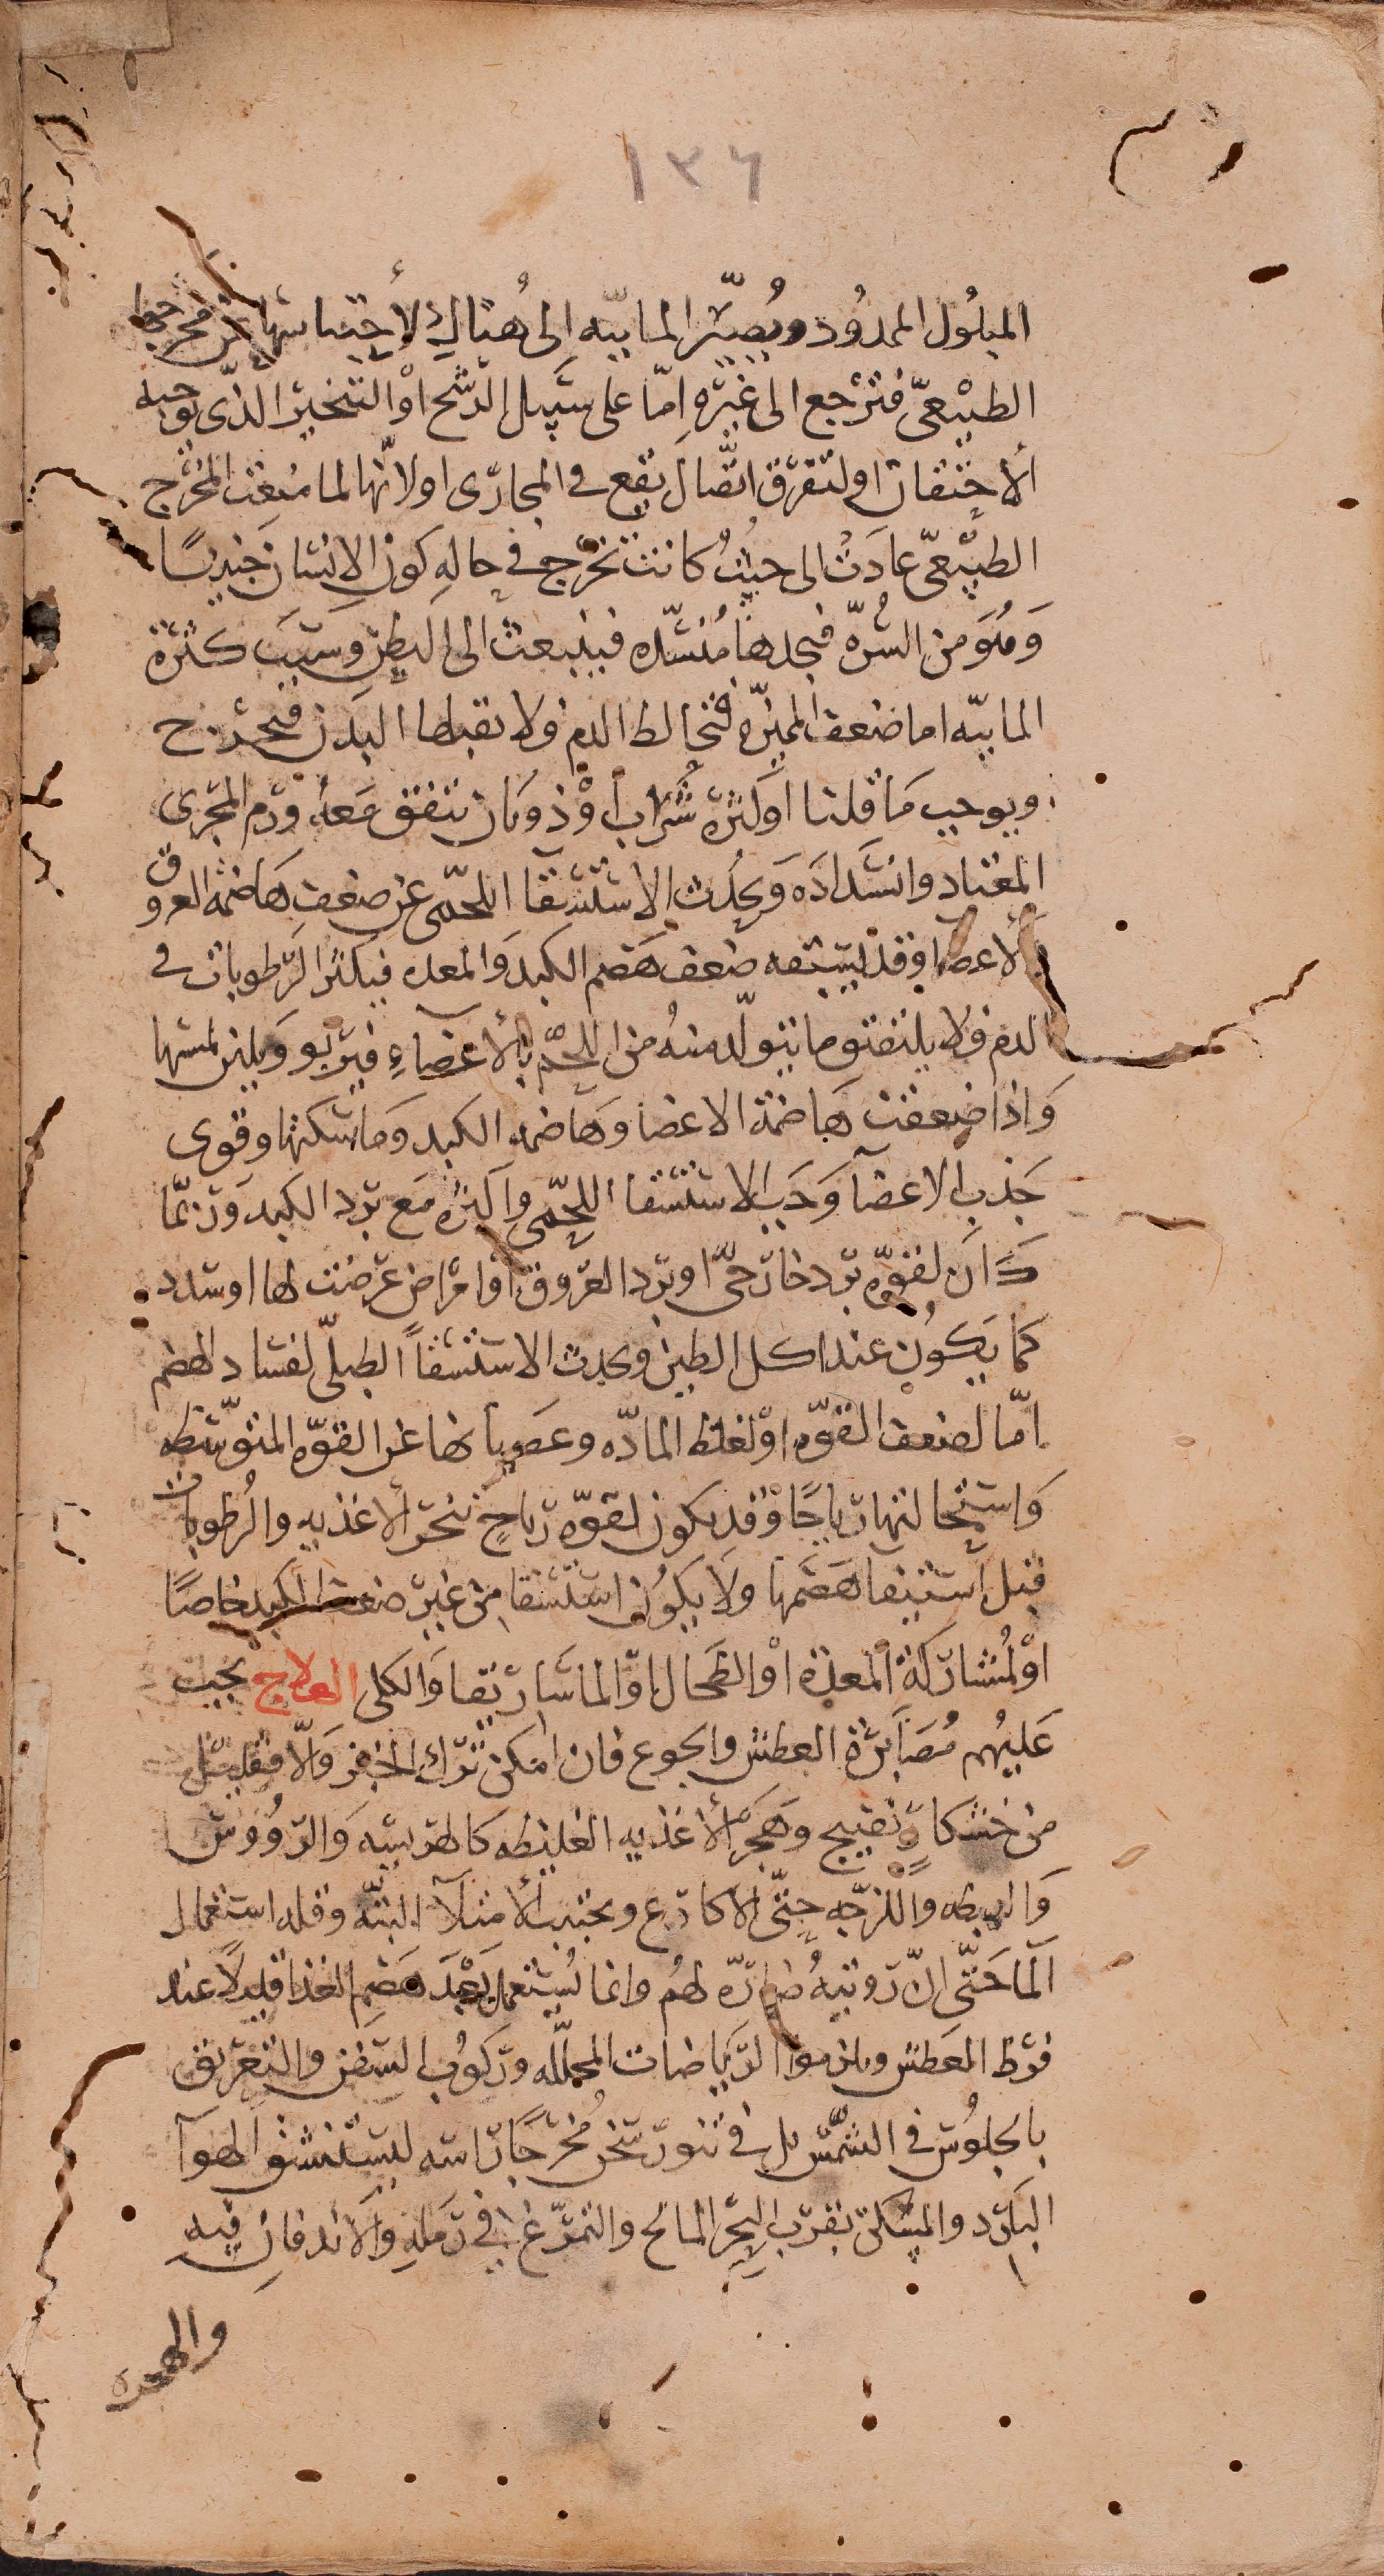 ١٣٦
المبلُول الممدُود ويُصيّر المائيّه اِلى هُنالِك لأحتباسها عن مخرجها
الطبيْعىّ فترجع الى غيْره اِمّا على سَبيل الرّشح اوْ التبخير الذّى يوجبه
ألاحتقان او لتفرّق اتّصال يقع في المجارّى او لانّها لما مُنِعَت المخرّج
الطبيْعىّ عادَت الى حيثُ كانت تخرّج في حالهِ كون الاِنسان جنينًا
وَهُوَ من السُرّه فيجدها مُنسّده فينبعث الى البطنِ وسَبَب كثرة
المائيّه اما ضعف المميّزه فتخالط الدم ولا يقبلها البدن فيحدث ح
ويوجب مَا قلنا او كثرة شُرَابٍ اوْ ذوبَان تتفق مَعهُ ورَم المجرى
المعتاد وانسَدادَه وَيحدُث الاستسقا اللحّمى عن ضعف هَاضمه العروق
والأعضا وقد يسبقه ضعف هَضم الكبد وَالمعده فيكثر الرّطوبات في
الدم ولا يلتصق ما يتولّد منهُ من اللحّم بالأعضاءِ فيرّبو وَيلين لمسها
وَاذا ضعفت هَاضمة الاعضا وَهَاضمه الكبد وَمَاسكتها وقوى
جَذب الاعضآ وَجَب الاستسقا اللحّمى واكثره مَع برد الكبد وَربّما
كَانَ لقوّه برّد خارجىّ او برد العرّوق او امرّاض عرّضت لها او سُدد
كمَا يَكوُن عند اكل الطين ويحدث الاستسقآ الطبلّى لفسَاد الهضم
امّا لضعف القوّه اوْ لغلظ المادّه وعصيانها عن القوّه المتوّسّطه
وَاستحالتها رياحًا وْقد يكون لقوّه رياحٍ تبخر الأغذيه والرُطوبات
قبل استيفا هَضمها ولا يكوُن استسقا من غير ضعف الكبد خاصًا
اوْ لمُشارّكة المعدة اوْ الطحال اوّ الماسَاريقا وَالكلى العلاج يجب
عَليهُم مُصَابَرّة العطش والجوع فان امكن ترك الخبز وَالاّ فقليل
من خشكارٍ نضيج وَهَجرْ ألأغذيه الغليظه كالهريسَه وَالرّوُوسْ
وَالربطه واللزجه حتّى الاكارع ويجتنب الأمتلآ البتّه وقله استعمال
المآ حَتّى انّ رويتهُ ضارّه لهُم وانما يُستعمل بَعْدَ هَضم الغذا قليلاً عند
فرط العطش ويلزموا الرّياضات المحللّه ورّكوُب السّفن والتّعرّيق
بالجلوُس في الشّمْس بل في تنور سخن مُخرّجًا راسه ليستنشق الهوآ
البَارد والمسكن بقرّب البحر المالح والتمرّغ في رَملهِ وَالأندفان فيه